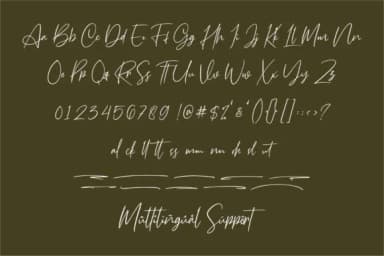 Aa Bb Cc Dd Ee Ff Gg Hh Ii Jj Kk Ll Mm Nn
Oo Pp Qq Rr Ss Tt Uu Vv Ww Xx Yy Zz
0123456789 !@#$%'&*(){}[]:;<>?
al ck ll tt ss mm nn ch sl ut
Multilingual Support